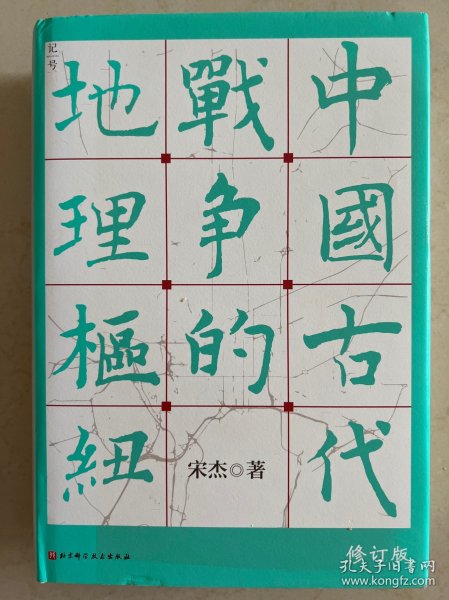 中國古代
戰争的
地理樞紐
宋杰◎著
记号
北京科学技术出版社
修订版
孔夫子旧书网
www.kongfz.com